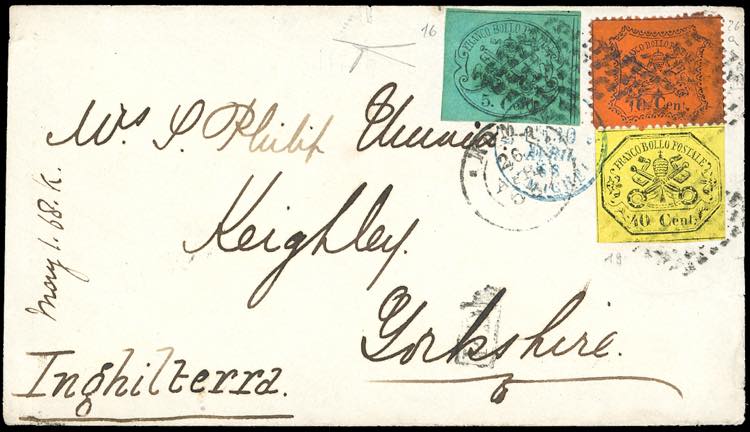 16
26
a
FRANCO BOLLO POSTALE
5. Cent
FRANCO BOLLO POSTALE
10 Cent.
FRANCO BOLLO POSTALE
40 Cent.
Mrs S. Philip
Keighley.
Yorkshire.
May 1. 68. K.
Inghilterra.